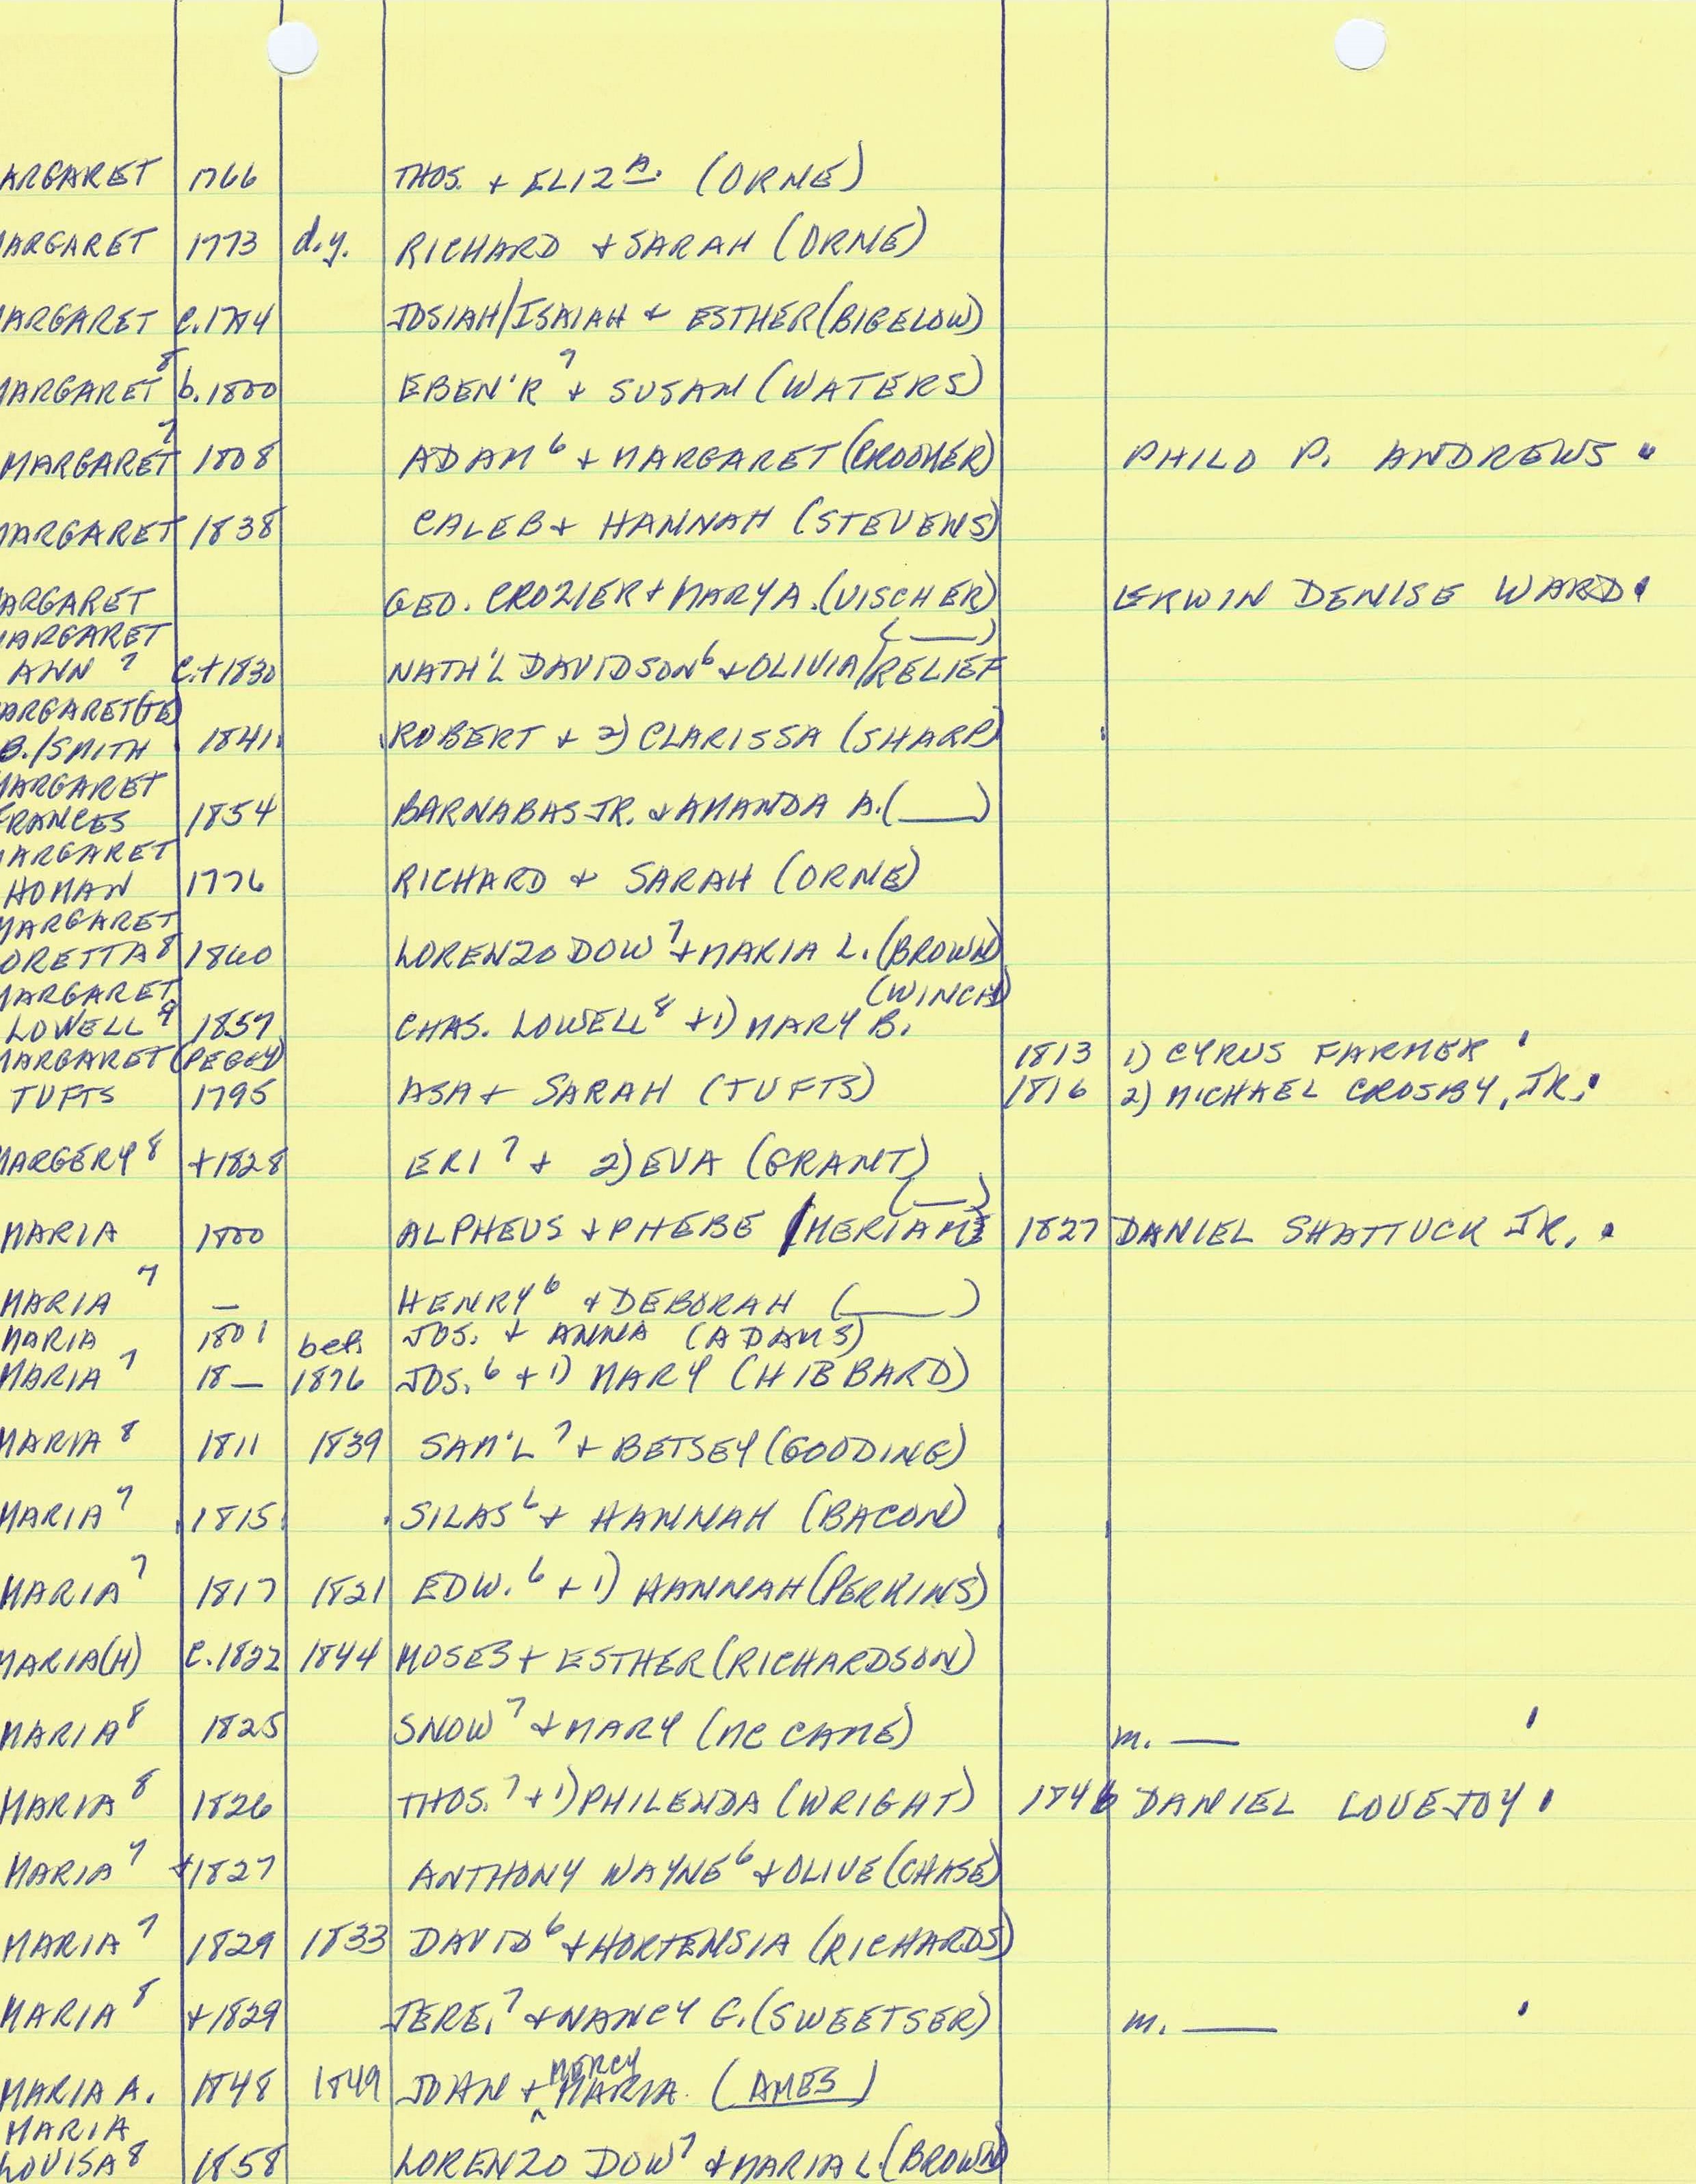 ARGARET 1766 THOS. + ELIZA. (ORNE)
MARGARET 1773 d.y. RICHARD + SARAH (ORNE)
MARGARET C. JOSIAH/ISAIAH + ESTHER (BIGELOW)
MARGARET 8 b. 1800 EBEN'R 7 + SUSAN (WATERS)
MARGARET 7 1808 ADAM 6 + MARGARET (CROOKER) PHILO P. ANDREWS
MARGARET 1838 CALEB + HANNAH (STEVENS)
ARGARET GEO. CROZIER + MARY A. (VISCHER) ERWIN DENISE WARD
MARGARET (___)
ANN 7 C.+1830 NATH'L DAVIDSON 6 + OLIVIA/RELIEF
ARGARET(TE)
B./SMITH 1841 ROBERT + 2) CLARISSA (SHARP)
MARGARET
FRANCES 1854 BARNABAS JR. + AMANDA A. (___)
MARGARET
HOMAN 1776 RICHARD + SARAH (ORNE)
MARGARET
ORETTA 8 1860 LORENZO DOW 7 + MARIA L. (BROWN)
MARGARET (WINCH)
LOWELL 9 1857 CHAS. LOWELL 8 + 1) MARY B.
MARGARET (PEGGY) 1813 1) CYRUS FARMER
TUFTS 1795 ASA + SARAH (TUFTS) 1816 2) MICHAEL CROSBY, JR.
MARGERY 8 +1828 ERI 7 + 2) EVA (GRANT)
(___)
MARIA 1800 ALPHEUS + PHEBE /MERIAM 1827 DANIEL SHATTUCK JR.
MARIA 7 — HENRY 6 + DEBORAH (___)
MARIA 1801 JOS. + ANNA (ADAMS)
bef.
MARIA 7 18— 1876 JOS. 6 + 1) MARY (HIBBARD)
MARIA 8 1811 1839 SAM'L 7 + BETSEY (GOODING)
MARIA 7 1815 SILAS 6 + HANNAH (BACON)
MARIA 7 1817 1821 EDW. 6 + 1) HANNAH (PERKINS)
MARIA(H) C.1822 1844 MOSES + ESTHER (RICHARDSON)
MARIA 8 1825 SNOW 7 + MARY (MC CANE) m. —
MARIA 8 1826 THOS. 7 + 1) PHILENDA (WRIGHT) 1846 DANIEL LOVEJOY
MARIA 7 +1827 ANTHONY WAYNE 6 + OLIVE (CHASE)
MARIA 7 1829 1833 DAVID 6 + HORTENSIA (RICHARDS)
MARIA 8 +1829 JERE. 7 + NANCY G. (SWEETSER) m. —
MERCY
MARIA A. 1848 1849 JOHN + ^ MARIA. (AMES)
MARIA
LOUISA 8 1858 LORENZO DOW 7 + MARIA L. (BROWN)